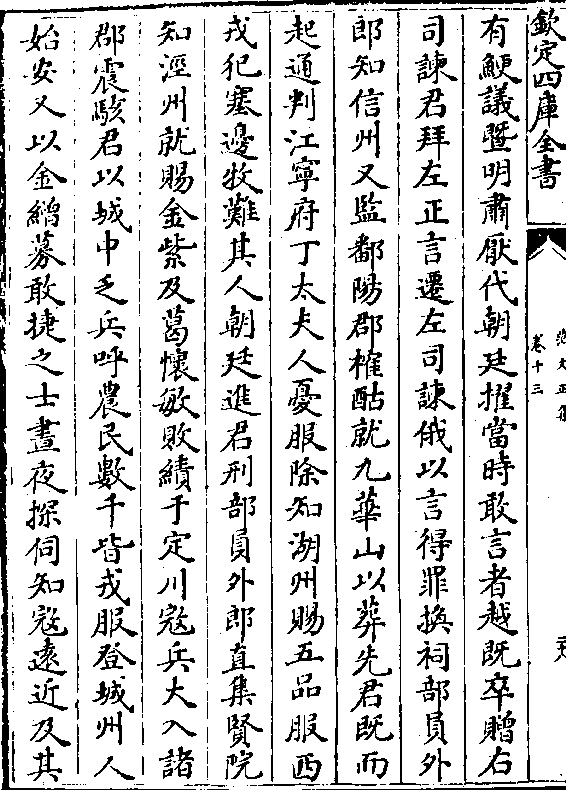 欽定四庫全書
范文正集
卷十三
有鯁議暨明肅厭代朝廷擢當時敢言者越既卒贈右
司諫君拜左正言遷左司諫俄以言得罪換祠部員外
郎知信州又監鄱陽郡榷酤就九華山以葬先君既而
起通判江寧府丁太夫人憂服除知湖州賜五品服西
戎犯塞邊牧難其人朝廷進君刑部員外郎直集賢院
知涇州就賜金紫及葛懷敏敗績于定川寇兵大入諸
郡震駭君以城中乏兵呼農民數千皆戎服登城州人
始安又以金繒募敢捷之士晝夜探伺知寇遠近及其